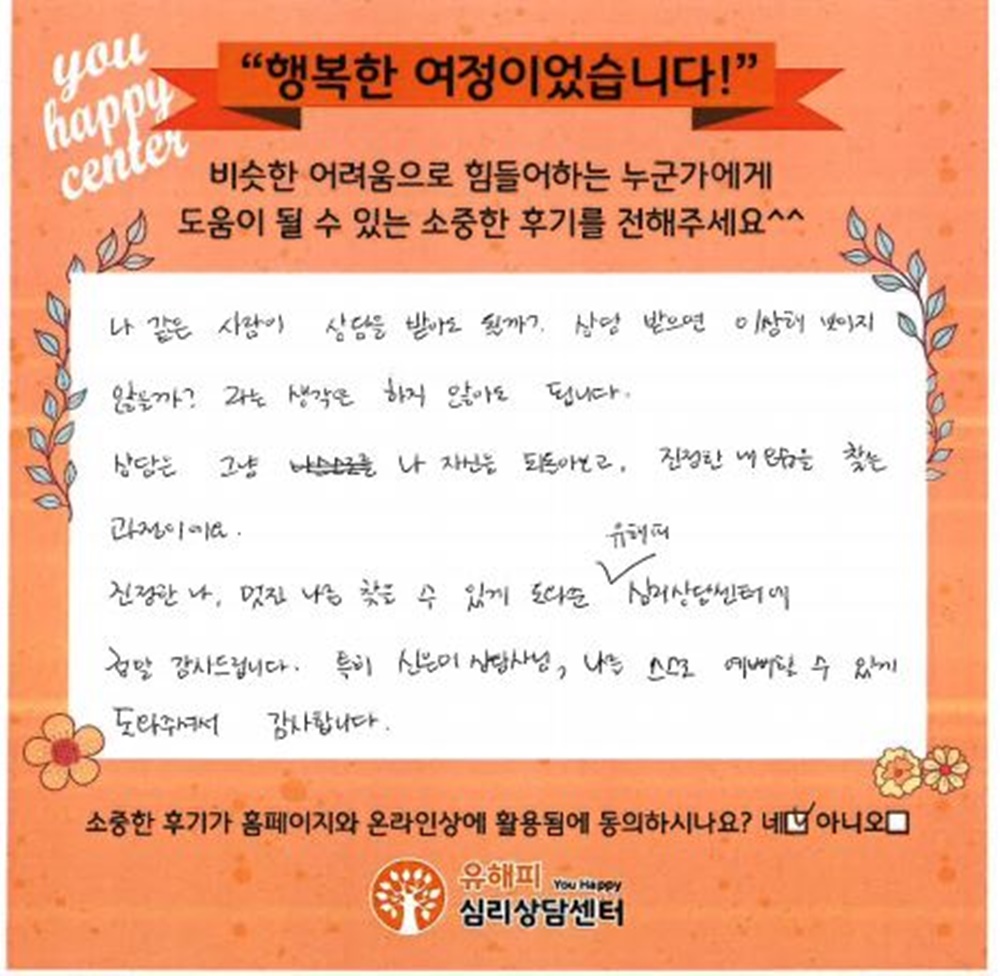 you
happy
center
“행복한 여정이었습니다!”
비슷한 어려움으로 힘들어하는 누군가에게
도움이 될 수 있는 소중한 후기를 전해주세요^^
나 같은 사람이 상담을 받아도 될까? 상담 받으면 이상해 보이지
않을까? 라는 생각은 하지 않아도 됩니다.
상담은 그냥 나 자신을 되돌아보고, 진정한 내 모습을 찾는
과정이에요.
유해피
진정한 나, 멋진 나를 찾을 수 있게 도와준 심리상담센터에
정말 감사드립니다. 특히 신은미 상담사님, 나를 스스로 예뻐할 수 있게
도와주셔서 감사합니다.
소중한 후기가 홈페이지와 온라인상에 활용됨에 동의하시나요? 네 아니오
유해피 You Happy
심리상담센터